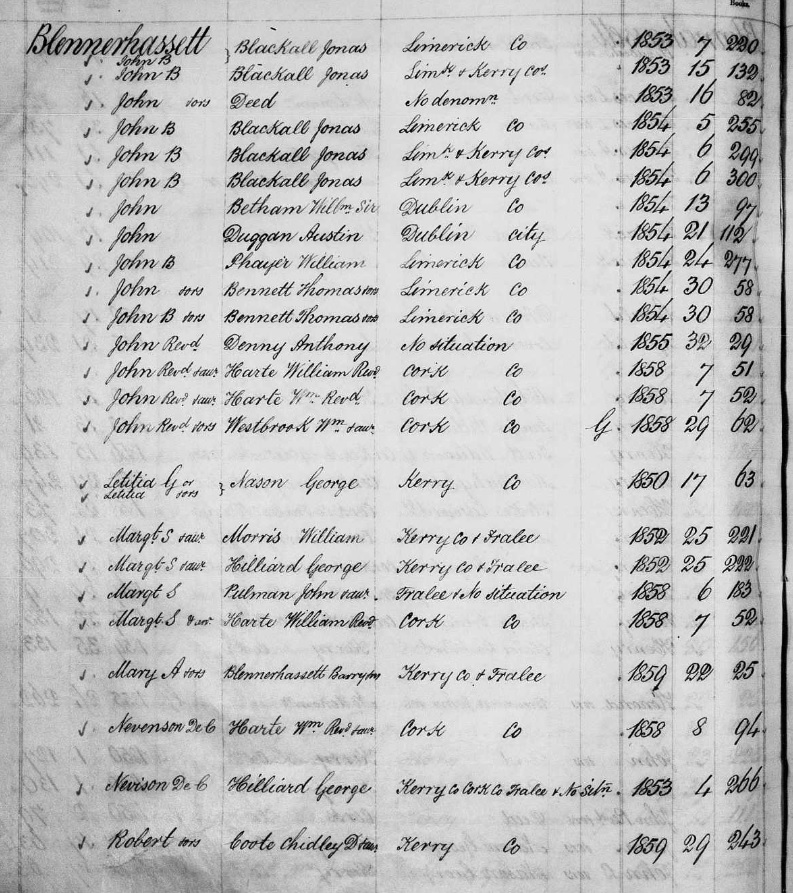 Books.
Blennerhassett } Blackall Jonas Limerick Co 1853 7 220
John B
John B Blackall Jonas Limk & Kerry Cos 1853 15 132
John ors Deed No denomn 1853 16 82
John B Blackall Jonas Limerick Co 1854 5 255
John B Blackall Jonas Limk & Kerry Cos 1854 6 299
John B Blackall Jonas Limk & Kerry Cos 1854 6 300
John Betham Willm Sir Dublin Co 1854 13 97
John Duggan Austin Dublin city 1854 21 112
John B Phayer William Limerick Co 1854 24 277
John ors Bennett Thomas ors Limerick Co 1854 30 58
John B ors Bennett Thomas ors Limerick Co 1854 30 58
John Revd Denny Anthony No situation 1855 32 29
John Revd & anr Harte William Revd Cork Co 1858 7 51
John Revd & anr Harte Wm Revd Cork Co 1858 7 52
John Revd ors Westbrook Wm & anr Cork Co G 1858 29 62
Letitia G or } Nason George Kerry Co 1850 17 63
Letitia ors
Margt S & anr Morris William Kerry Co & Tralee 1852 25 221
Margt S & anr Hilliard George Kerry Co & Tralee 1852 25 222
Margt S Pulman John & anr Tralee & No situation 1858 6 183
Margt S & or Harte William Revd Cork Co 1858 7 52
Mary A ors Blennerhassett Barry Kerry Co & Tralee 1859 22 25
Nevenson De C Harte Wm Revd & anr Cork Co 1858 8 94
Nevison De C Hilliard George Kerry Co Cork Co Tralee & No Sitn 1853 4 266
Robert ors Coote Chidley D & anr Kerry Co 1859 29 243